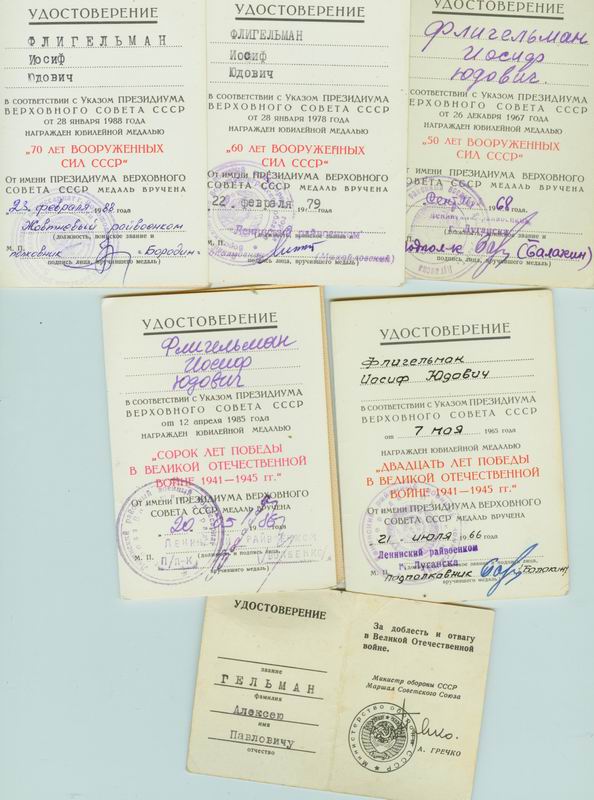 УДОСТОВЕРЕНИЕ
ФЛИГЕЛЬМАН
Иосиф
Юдович
В СООТВЕТСТВИИ С УКАЗОМ ПРЕЗИДИУМА
ВЕРХОВНОГО СОВЕТА СССР
ОТ 28 ЯНВАРЯ 1988 ГОДА
НАГРАЖДЕН ЮБИЛЕЙНОЙ МЕДАЛЬЮ
„70 ЛЕТ ВООРУЖЕННЫХ
СИЛ СССР“
ОТ ИМЕНИ ПРЕЗИДИУМА ВЕРХОВНОГО
СОВЕТА СССР МЕДАЛЬ ВРУЧЕНА
23 февраля 1988 года
Жовтневый райвоенком
(должность, воинское звание и
М. П. полковник Бородин
подпись лица, вручившего медаль)
УДОСТОВЕРЕНИЕ
ФЛИГЕЛЬМАН
Иосиф
Юдович
В СООТВЕТСТВИИ С УКАЗОМ ПРЕЗИДИУМА
ВЕРХОВНОГО СОВЕТА СССР
ОТ 28 ЯНВАРЯ 1978 ГОДА
НАГРАЖДЕН ЮБИЛЕЙНОЙ МЕДАЛЬЮ
„60 ЛЕТ ВООРУЖЕННЫХ
СИЛ СССР“
ОТ ИМЕНИ ПРЕЗИДИУМА ВЕРХОВНОГО
СОВЕТА СССР МЕДАЛЬ ВРУЧЕНА
22 февраля 1979 года
Ленинский райвоенком
(Михайловский)
подпись лица, вручившего медаль)
УДОСТОВЕРЕНИЕ
Флигельман
Иосиф
Юдович.
В СООТВЕТСТВИИ С УКАЗОМ ПРЕЗИДИУМА
ВЕРХОВНОГО СОВЕТА СССР
ОТ 26 ДЕКАБРЯ 1967 ГОДА
НАГРАЖДЕН ЮБИЛЕЙНОЙ МЕДАЛЬЮ
„50 ЛЕТ ВООРУЖЕННЫХ
СИЛ СССР“
ОТ ИМЕНИ ПРЕЗИДИУМА ВЕРХОВНОГО
СОВЕТА СССР МЕДАЛЬ ВРУЧЕНА
1968 года
г. Луганска
(Балакин)
подпись лица, вручившего медаль)
УДОСТОВЕРЕНИЕ
Флигельман
Иосиф
Юдович
В СООТВЕТСТВИИ С УКАЗОМ ПРЕЗИДИУМА
ВЕРХОВНОГО СОВЕТА СССР
от 12 апреля 1985 года
НАГРАЖДЕН ЮБИЛЕЙНОЙ МЕДАЛЬЮ
„СОРОК ЛЕТ ПОБЕДЫ
В ВЕЛИКОЙ ОТЕЧЕСТВЕННОЙ
ВОЙНЕ 1941—1945 гг.“
ОТ ИМЕНИ ПРЕЗИДИУМА ВЕРХОВНОГО
СОВЕТА СССР МЕДАЛЬ ВРУЧЕНА
М. П.
П/п-к
вручившего медаль)
УДОСТОВЕРЕНИЕ
Флигельман
Иосиф Юдович
В СООТВЕТСТВИИ С УКАЗОМ ПРЕЗИДИУМА
ВЕРХОВНОГО СОВЕТА СССР
от 7 мая 1965 года
НАГРАЖДЕН ЮБИЛЕЙНОЙ МЕДАЛЬЮ
„ДВАДЦАТЬ ЛЕТ ПОБЕДЫ
В ВЕЛИКОЙ ОТЕЧЕСТВЕННОЙ
ВОЙНЕ 1941—1945 гг.“
ОТ ИМЕНИ ПРЕЗИДИУМА ВЕРХОВНОГО
СОВЕТА СССР МЕДАЛЬ ВРУЧЕНА
21 июля 1966 года
Ленинский райвоенком
г. Луганска
М. П. подполковник (Балакин)
вручившего медаль)
УДОСТОВЕРЕНИЕ
звание
ГЕЛЬМАН
фамилия
Алексею
имя
Павловичу
отчество
За доблесть и отвагу
в Великой Отечественной
войне.
Министр обороны СССР
Маршал Советского Союза
А. ГРЕЧКО
Министерство обороны СССР